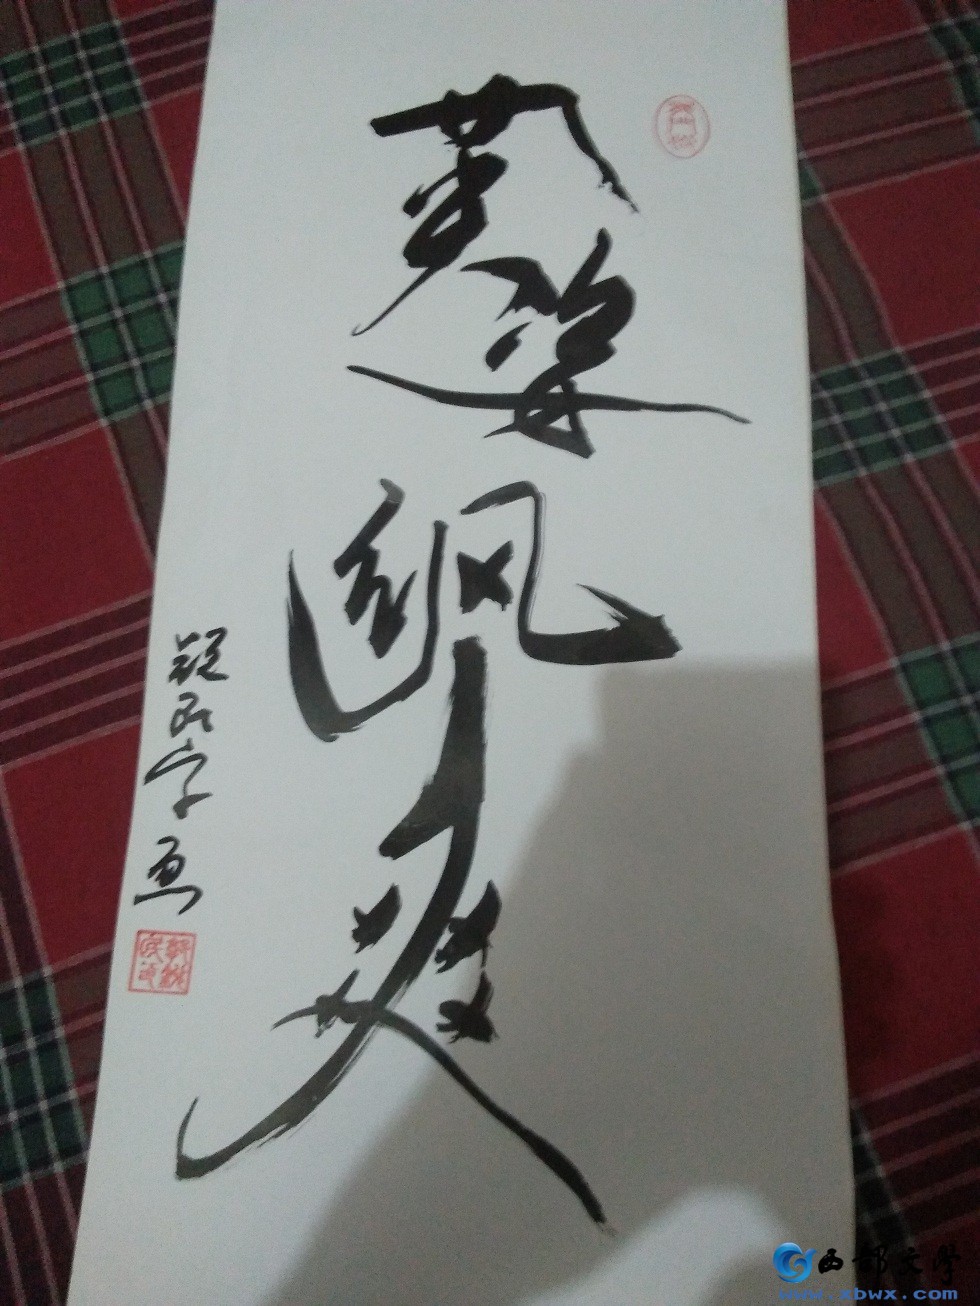 英姿飒爽
字画
西部文学
www.xbwx.com